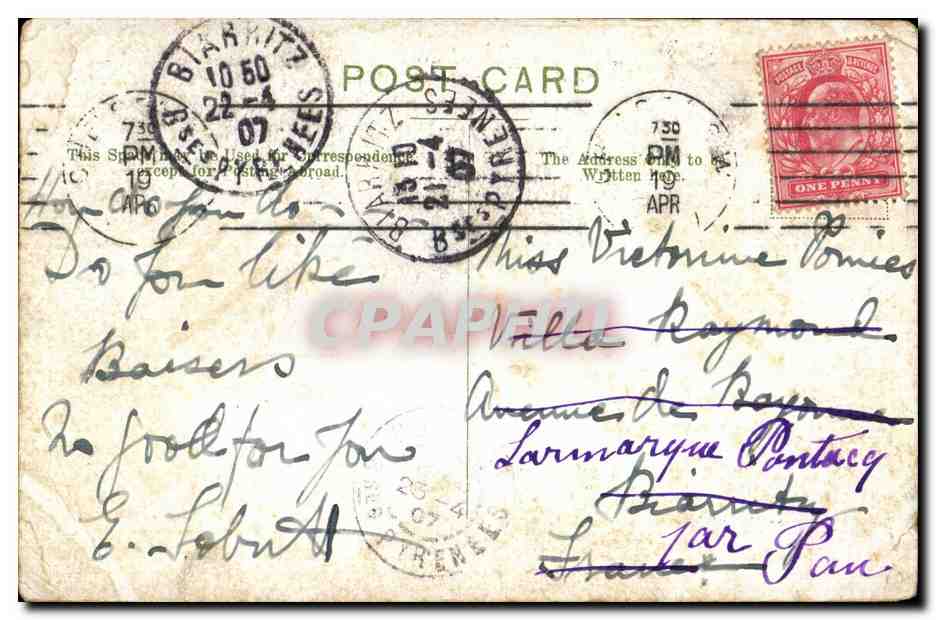 POST CARD
BIARRITZ
10 50
22 - 4
07
Bses PYRENEES
BIARRITZ
21 - 4
07
Bses PYRENEES
730
PM
19
APR
730
PM
19
APR
POSTAGE REVENUE
ONE PENNY
This Space may be Used for Correspondence
except for Posting Abroad.
The Address Only to be
Written here.
How do you do -
Do you like
Baisers
No good for you
E.
Miss Victorine Pomies
Villa Raymond
Avenue de Bayonne
Biarritz
France
Larmarque Pontacq
par Pau
23 - 4
07
PYRENEES
CPAPHIL